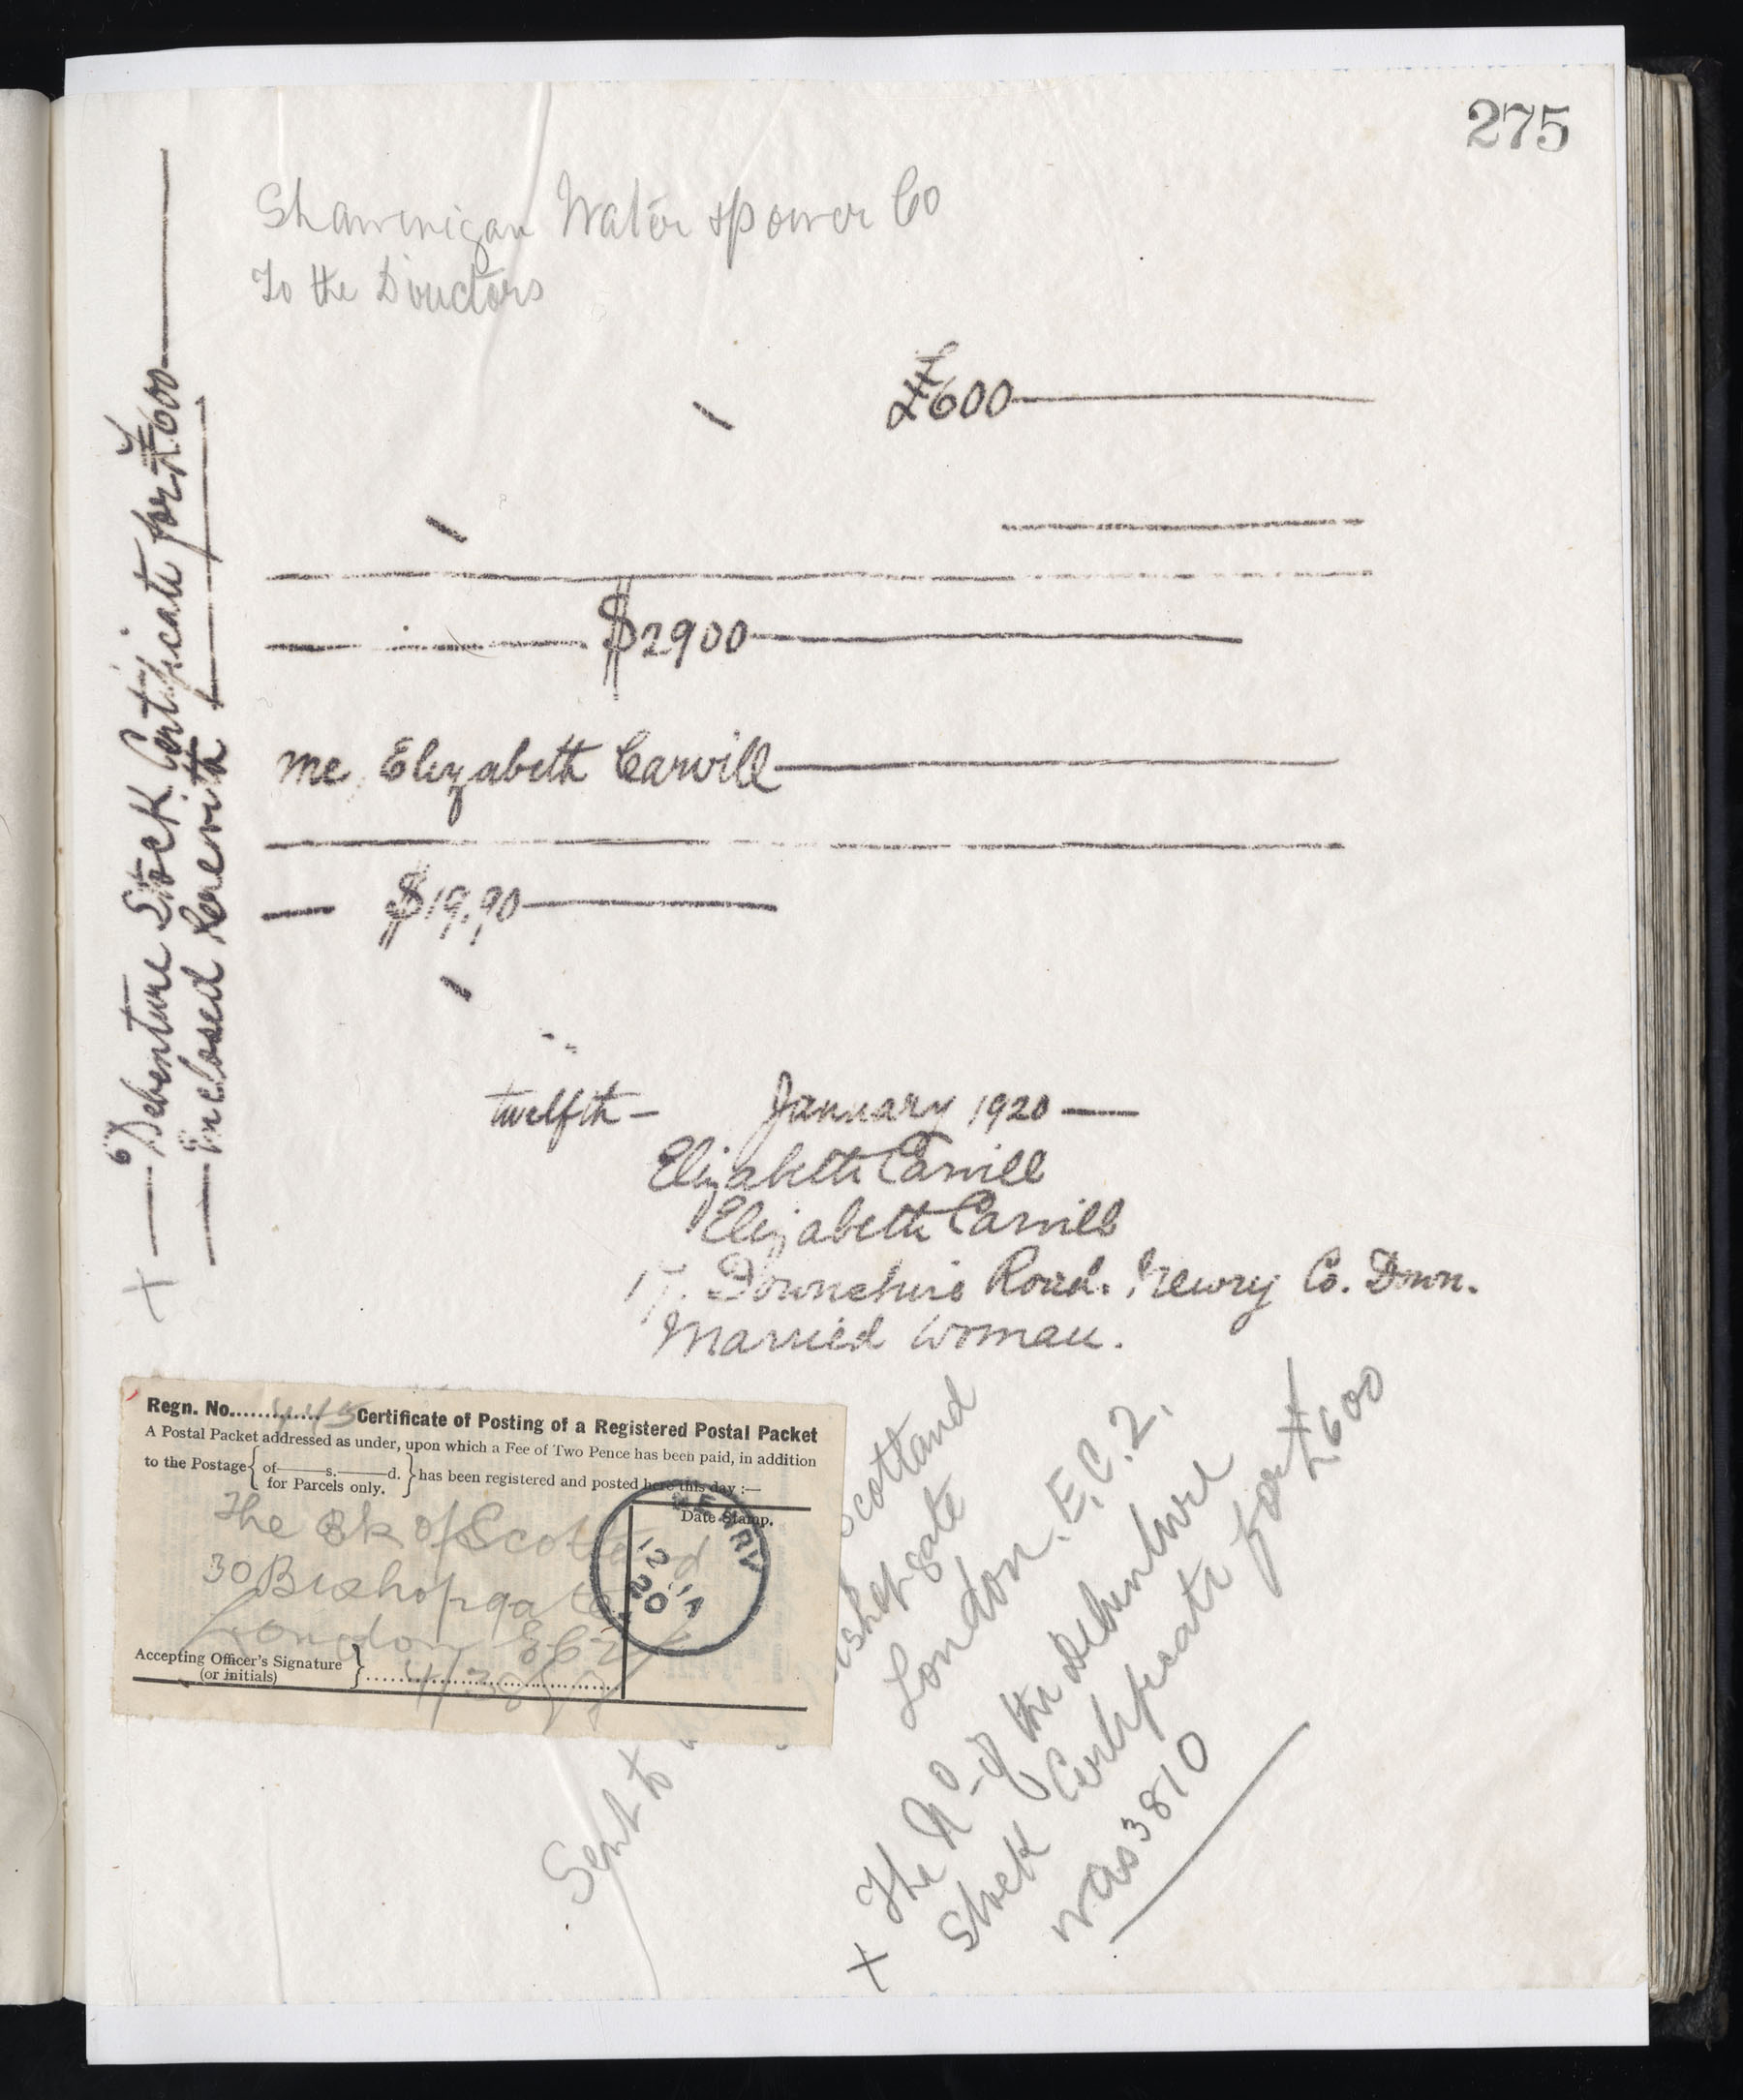 275
Shawinigan Water & Power Co
To the Directors
£600
$2900
me, Elizabeth Carvill
$19,90
twelfth — January 1920 —
Elizabeth Carvill
Elizabeth Carvill
17. Downshire Road. Newry Co. Down.
Married Woman.
Debenture Stock Certificate for £600
Enclosed herewith
Regn. No. 445 Certificate of Posting of a Registered Postal Packet
A Postal Packet addressed as under, upon which a Fee of Two Pence has been paid, in addition
to the Postage { of — s. — d.
for Parcels only. } has been registered and posted here this day :—
Date Stamp.
NEWRY
12 JA
20
The Bk of Scotland
30 Bishopgate
London E C 2
Accepting Officer's Signature
(or initials) }
Sent to
Scotland
London. E.C. 2.
X The No of the debenture
Stock Certificate for £600
was 3810